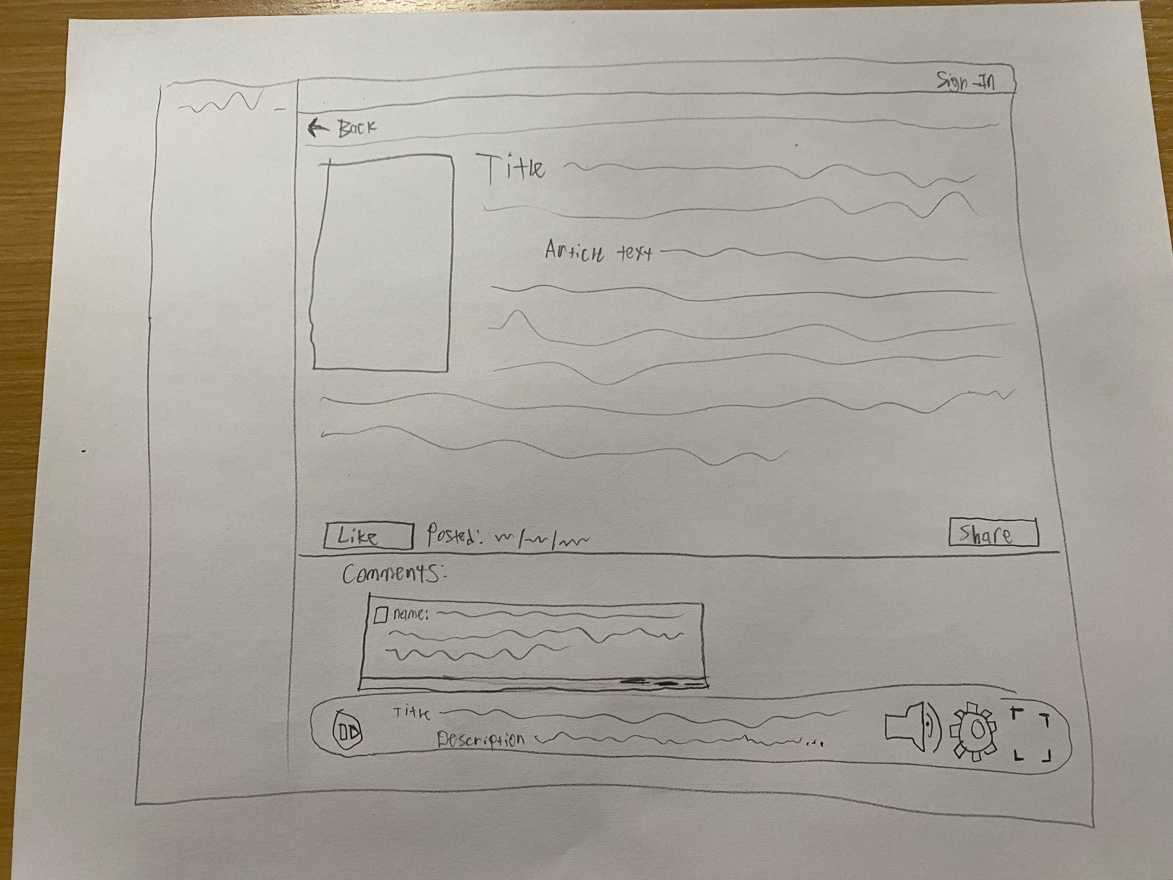 Sign-In
← Back
Title
Article text
Like Posted: / / Share
Comments:
name:
Title
Description ...